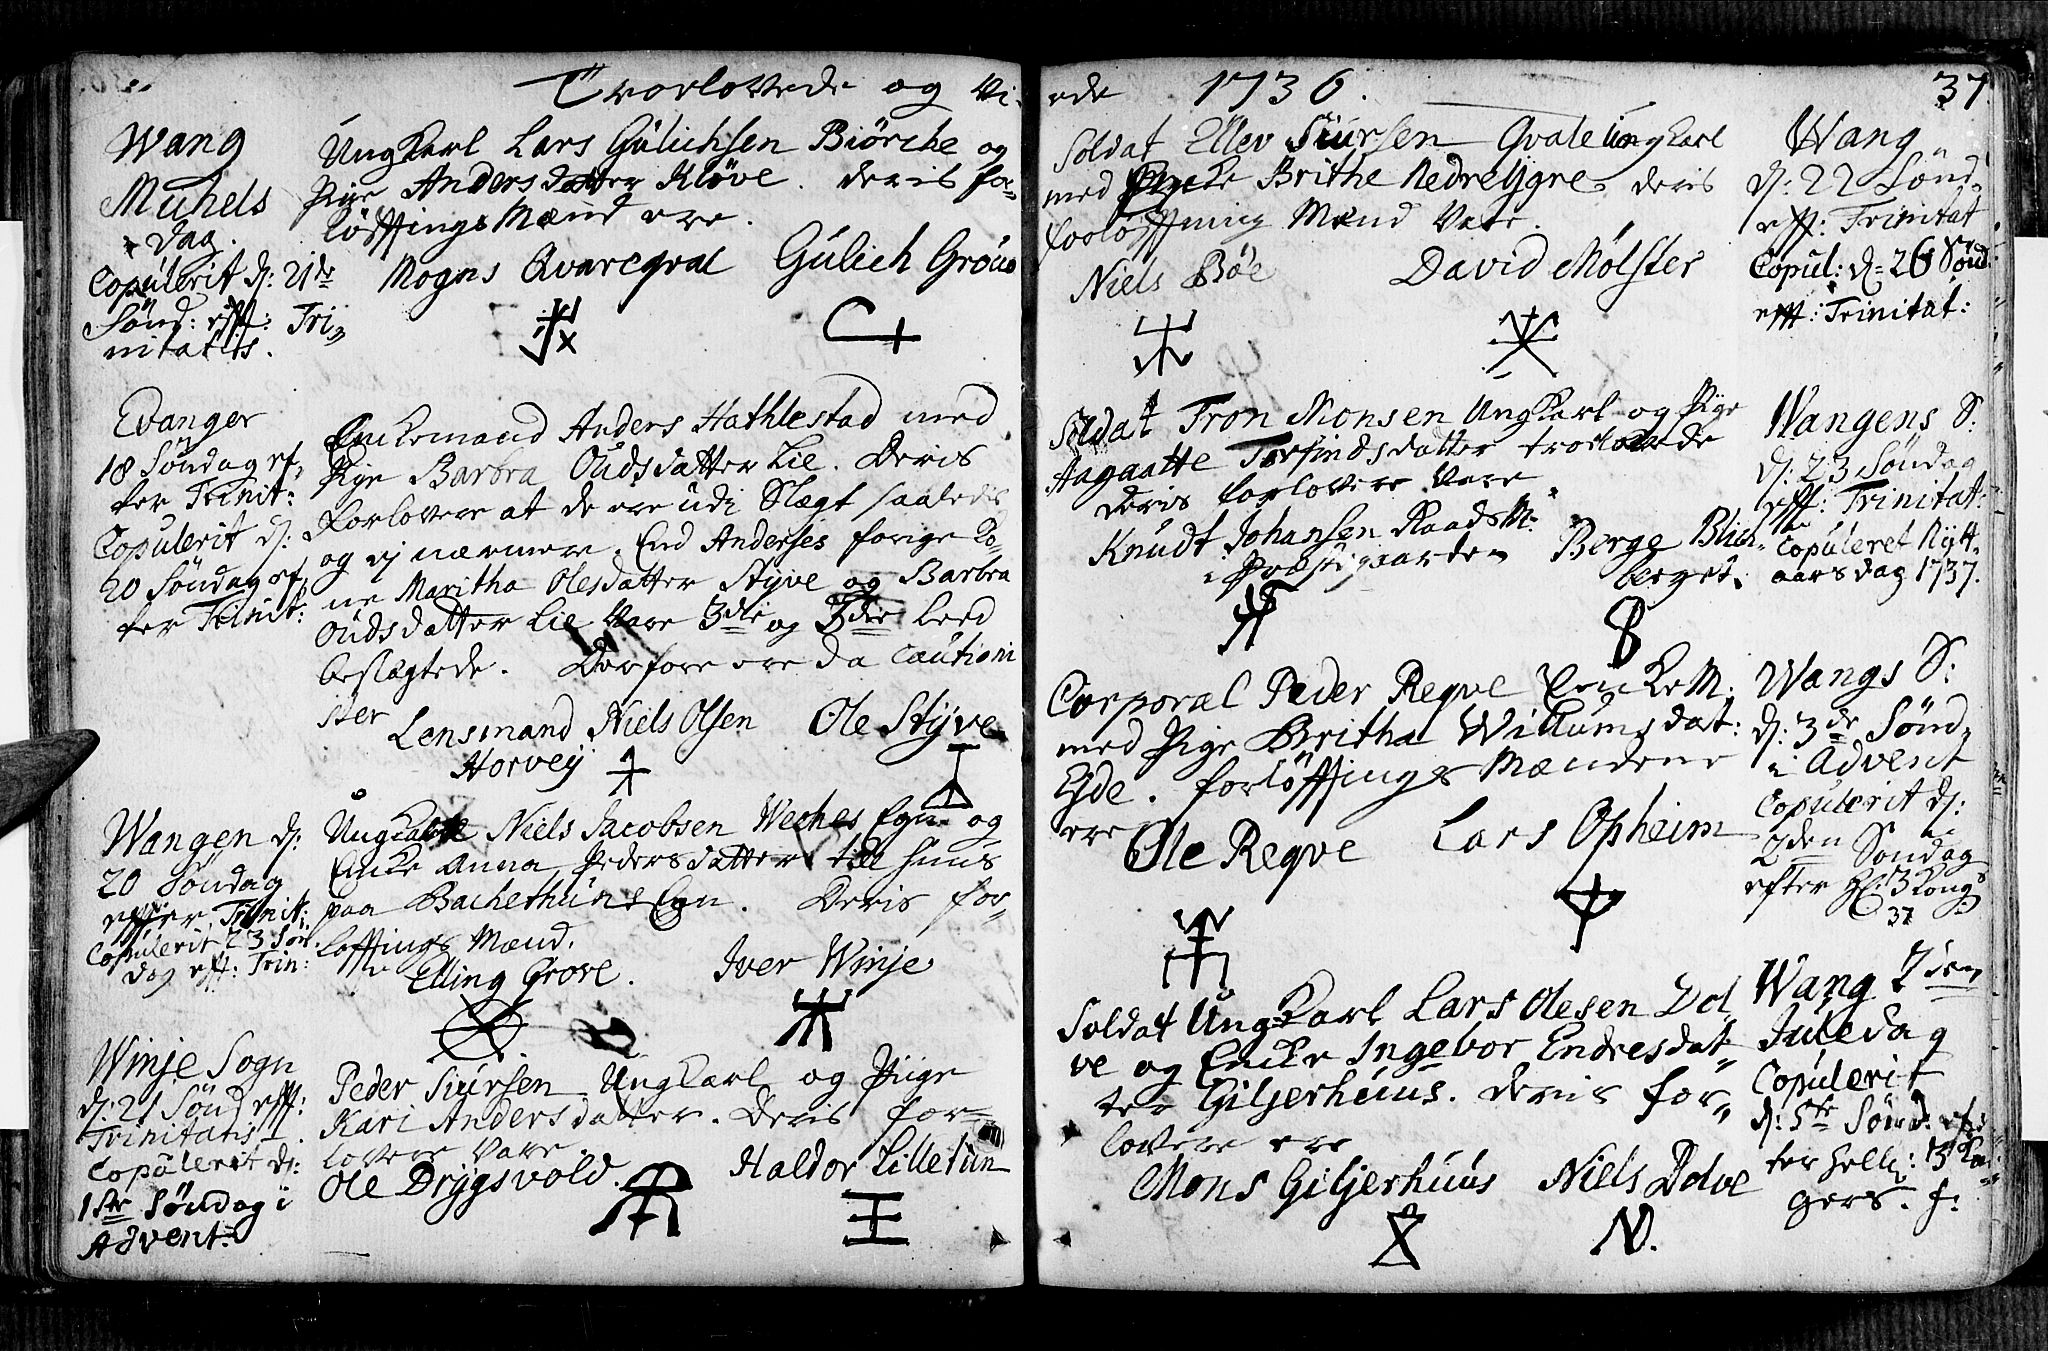 Trorlovede og Vi-
Wang
Michels
Dag.
Copúlerit d: 21de
Sønd: eft: Tri=
nitatis.
Ungkarl Lars Gúlichsen Biørche og
Pige Anders datter Kløve. Deris for=
løffings Mænd ere.
Mogns Qvareqval Gúlich Gröue
Evanger
18 Søndag ef=
ter Trinit:
Copulerit d:
20 Søndag ef=
ter Trinit:
Enckemand Anders Hathlestad med
Pige Barbra Oudsdatter Lie. Deris
Forlovere at de ere udi Slægt saaledis
og ej nærmere. End Anderses forige Ko=
ne Maritha Olesdatter Styve og Barbra
Oudsdatter Lie Vare 3die og 3die Leed
beslægtede. Derfore ere da Caútioni
ster
Lensmand Niels Olsen Ole Stÿve
Horveÿ
Wangen d:
20 Søndag
effter Trinit:
Copúlerit 23 Søn
dag eff: Trin:
Ungkarl Niels Jacobsen Weches Egn og
Encke Anna Pedersdatter till Húús
paa Bachethuns Egn. Deris for=
løffings Mænd.
Elling Grove. Iver Winje
Winje Sogn
d: 21 Sønd eff:
Trinitatis.
Copúlerit d:
1ste Søndag i
Advent:
Peder Siursen Ungkarl og Piige
Kari Andersdatter. Deris for=
lovere vare
Ole Drÿgsvold. Haldor Lilletun
ede 1736. 37
Soldat Ellev Siúrsen Qvale Ungkarl
med Encke Brithe Nedre Ygre deris
forløffning Mænd Vare.
Niels Bøe David Mølster
Wang
d: 22 Sønd.
eff: Trinitat
Copul: d= 26 Sønd:
eff: Trinitat:
Soldat Tron Monsen Ungkarl og Pige
Aagaatte Torfindsdatter trorlovede
deris forlovere vare
Knúdt Johansen Raads M: Berge Blich=
i Præstgaarden berget.
Wangens S:
d: 23 Søndag
eff: Trinitat:
Copuleret Nÿtt=
aars dag 1737.
Corporal Peder Reqve EnckeM:
med Pige Britha Willumsdat:
Gjde. forløffings Mændene
ere
Ole Reqve Lars Opheim
Wangs S:
d: 3de Sønd=
i Advent
Copúlerit d:
2den Søndag
efter H: 3 Kong:
37
Soldat Ungkarl Lars Olesen Dol
ve og Encke Ingebor Endresdat=
ter Giljerhúus. deris for=
lovere ere
Mons Giljerhúús Niels Dolve
N.
Wang 2den
Juledag
Copúlerit
d: 5te Sønd: ef=
ter Hellig: 3 Ko=
gers. f: